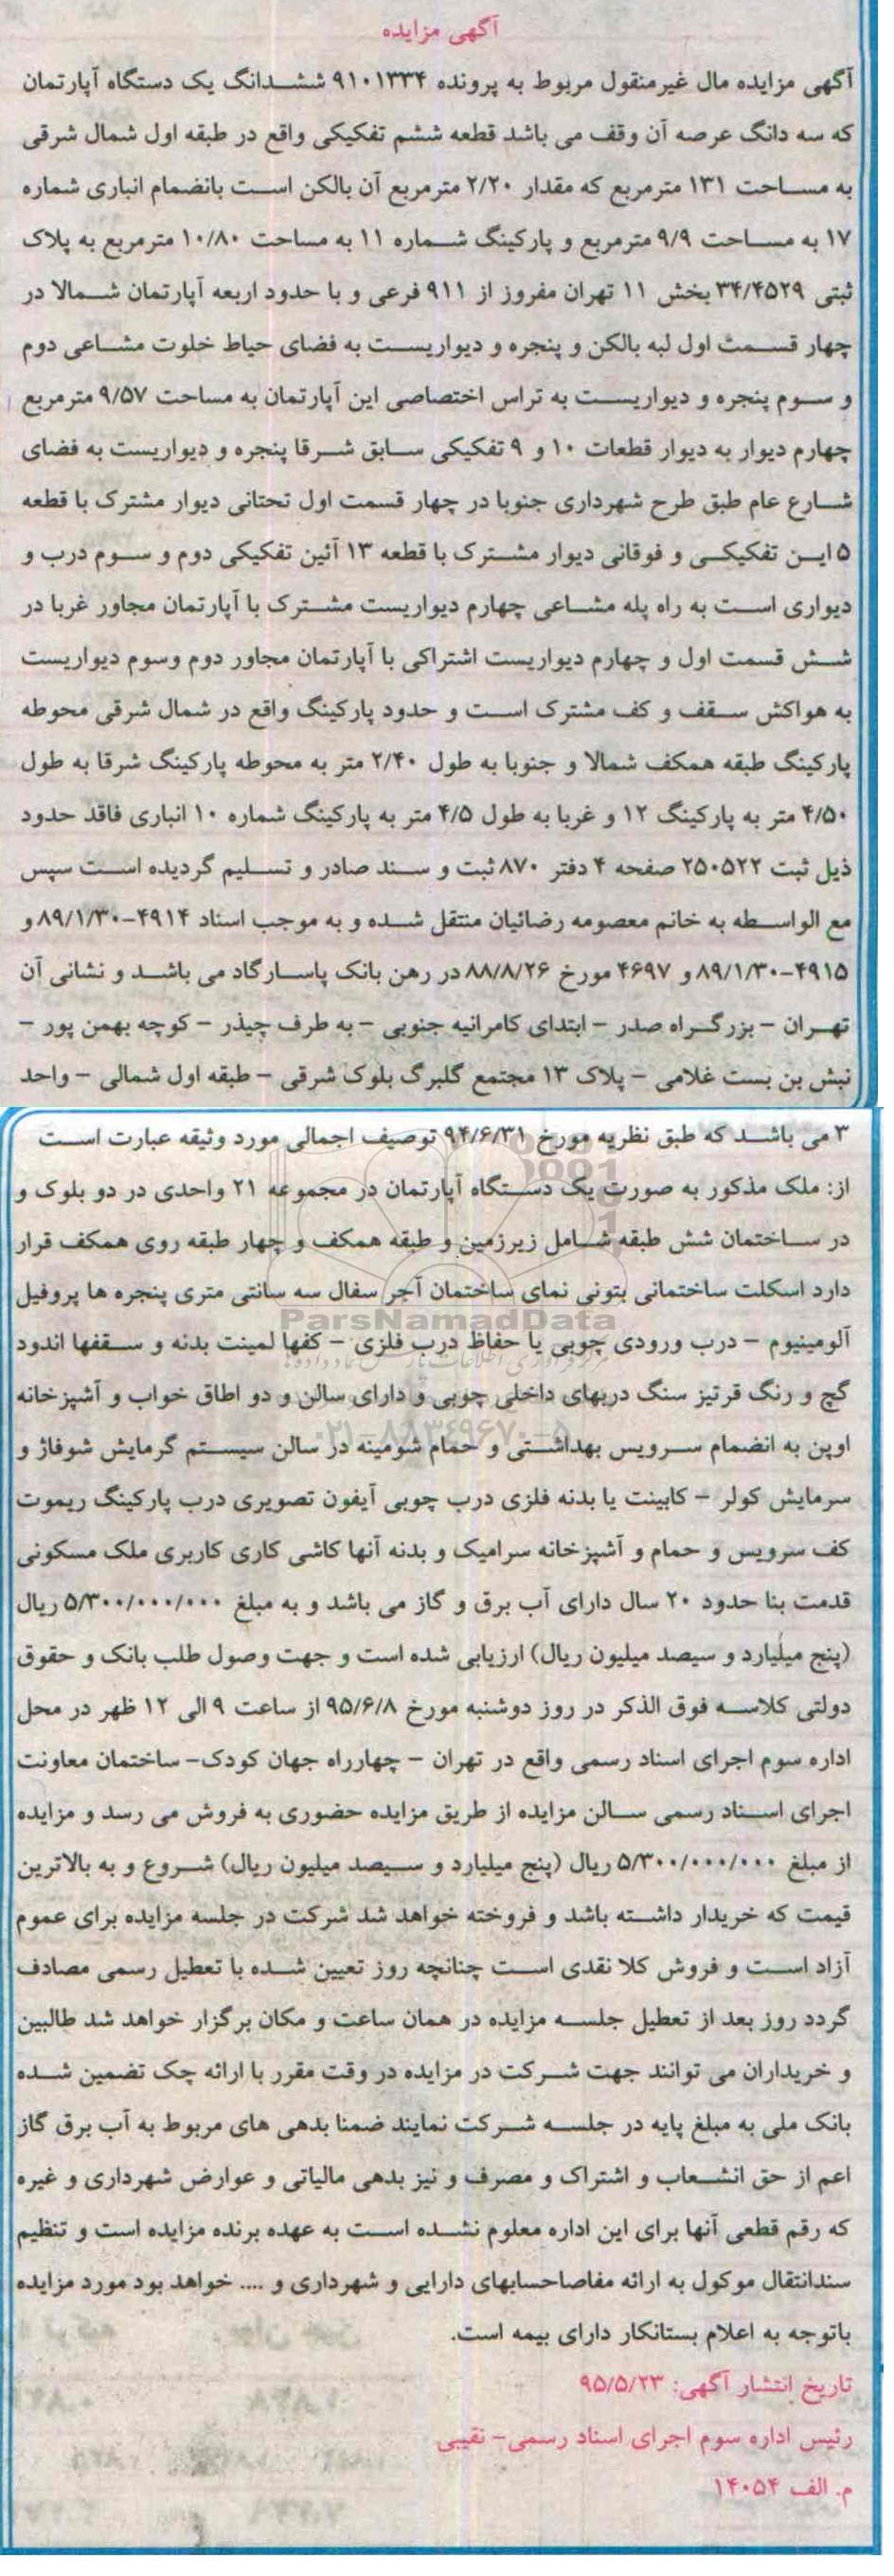 آگهی مزایده
آگهی مزایده مال غیرمنقول مربوط به پرونده ۹۱۰۱۳۳۴ ششدانگ یک دستگاه آپارتمان
که سه دانگ عرصه آن وقف می باشد قطعه ششم تفکیکی واقع در طبقه اول شمال شرقی
به مساحت ۱۳۱ مترمربع که مقدار ۲/۲۰ مترمربع آن بالکن است بانضمام انباری شماره
۱۷ به مساحت ۹/۹ مترمربع و پارکینگ شماره ۱۱ به مساحت ۱۰/۸۰ مترمربع به پلاک
ثبتی ۳۴/۴۵۲۹ بخش ۱۱ تهران مفروز از ۹۱۱ فرعی و با حدود اربعه آپارتمان شمالا در
چهار قسمت اول لبه بالکن و پنجره و دیواریست به فضای حیاط خلوت مشاعی دوم
و سوم پنجره و دیواریست به تراس اختصاصی این آپارتمان به مساحت ۹/۵۷ مترمربع
چهارم دیوار به دیوار قطعات ۱۰ و ۹ تفکیکی سابق شرقا پنجره و دیواریست به فضای
شارع عام طبق طرح شهرداری جنوبا در چهار قسمت اول تحتانی دیوار مشترک با قطعه
۵ این تفکیکی و فوقانی دیوار مشترک با قطعه ۱۳ آئین تفکیکی دوم و سوم درب و
دیواری است به راه پله مشاعی چهارم دیواریست مشترک با آپارتمان مجاور غربا در
شش قسمت اول و چهارم دیواریست اشتراکی با آپارتمان مجاور دوم وسوم دیواریست
به هواکش سقف و کف مشترک است و حدود پارکینگ واقع در شمال شرقی محوطه
پارکینگ طبقه همکف شمالا و جنوبا به طول ۲/۴۰ متر به محوطه پارکینگ شرقا به طول
۴/۵۰ متر به پارکینگ ۱۲ و غربا به طول ۴/۵ متر به پارکینگ شماره ۱۰ انباری فاقد حدود
ذیل ثبت ۲۵۰۵۲۲ صفحه ۴ دفتر ۸۷۰ ثبت و سند صادر و تسلیم گردیده است سپس
مع الواسطه به خانم معصومه رضائیان منتقل شده و به موجب اسناد ۴۹۱۴-۸۹/۱/۳۰ و
۴۹۱۵-۸۹/۱/۳۰ و ۴۶۹۷ مورخ ۸۸/۸/۲۶ در رهن بانک پاسارگاد می باشد و نشانی آن
تهران - بزرگراه صدر - ابتدای کامرانیه جنوبی - به طرف چیذر - کوچه بهمن پور -
نبش بن بست غلامی - پلاک ۱۳ مجتمع گلبرگ بلوک شرقی - طبقه اول شمالی - واحد
۳ می باشد که طبق نظریه مورخ ۹۴/۶/۳۱ توصیف اجمالی مورد وثیقه عبارت است
از: ملک مذکور به صورت یک دستگاه آپارتمان در مجموعه ۲۱ واحدی در دو بلوک و
در ساختمان شش طبقه شامل زیرزمین و طبقه همکف و چهار طبقه روی همکف قرار
دارد اسکلت ساختمانی بتونی نمای ساختمان آجر سفال سه سانتی متری پنجره ها پروفیل
ParsNamadData
آلومینیوم - درب ورودی چوبی با حفاظ درب فلزی - کفها لمینت بدنه و سقفها اندود
گچ و رنگ قرنیز سنگ دربهای داخلی چوبی و دارای سالن و دو اطاق خواب و آشپزخانه
۰۲۱-۸۸۳۴۹۶۷۰-۵
اوپن به انضمام سرویس بهداشتی و حمام شومینه در سالن سیستم گرمایش شوفاژ و
سرمایش کولر - کابینت با بدنه فلزی درب چوبی آیفون تصویری درب پارکینگ ریموت
کف سرویس و حمام و آشپزخانه سرامیک و بدنه آنها کاشی کاری کاربری ملک مسکونی
قدمت بنا حدود ۲۰ سال دارای آب برق و گاز می باشد و به مبلغ ۵/۳۰۰/۰۰۰/۰۰۰ ریال
(پنج میلیارد و سیصد میلیون ریال) ارزیابی شده است و جهت وصول طلب بانک و حقوق
دولتی کلاسه فوق الذکر در روز دوشنبه مورخ ۹۵/۶/۸ از ساعت ۹ الی ۱۲ ظهر در محل
اداره سوم اجرای اسناد رسمی واقع در تهران - چهارراه جهان کودک- ساختمان معاونت
اجرای اسناد رسمی سالن مزایده از طریق مزایده حضوری به فروش می رسد و مزایده
از مبلغ ۵/۳۰۰/۰۰۰/۰۰۰ ریال (پنج میلیارد و سیصد میلیون ریال) شروع و به بالاترین
قیمت که خریدار داشته باشد و فروخته خواهد شد شرکت در جلسه مزایده برای عموم
آزاد است و فروش کلا نقدی است چنانچه روز تعیین شده با تعطیل رسمی مصادف
گردد روز بعد از تعطیل جلسه مزایده در همان ساعت و مکان برگزار خواهد شد طالبین
و خریداران می توانند جهت شرکت در مزایده در وقت مقرر با ارائه چک تضمین شده
بانک ملی به مبلغ پایه در جلسه شرکت نمایند ضمنا بدهی های مربوط به آب برق گاز
اعم از حق انشعاب و اشتراک و مصرف و نیز بدهی مالیاتی و عوارض شهرداری و غیره
که رقم قطعی آنها برای این اداره معلوم نشده است به عهده برنده مزایده است و تنظیم
سندانتقال موکول به ارائه مفاصاحسابهای دارایی و شهرداری و .... خواهد بود مورد مزایده
باتوجه به اعلام بستانکار دارای بیمه است.
تاریخ انتشار آگهی: ۹۵/۵/۲۳
رئیس اداره سوم اجرای اسناد رسمی- نقیبی
م. الف ۱۴۰۵۴